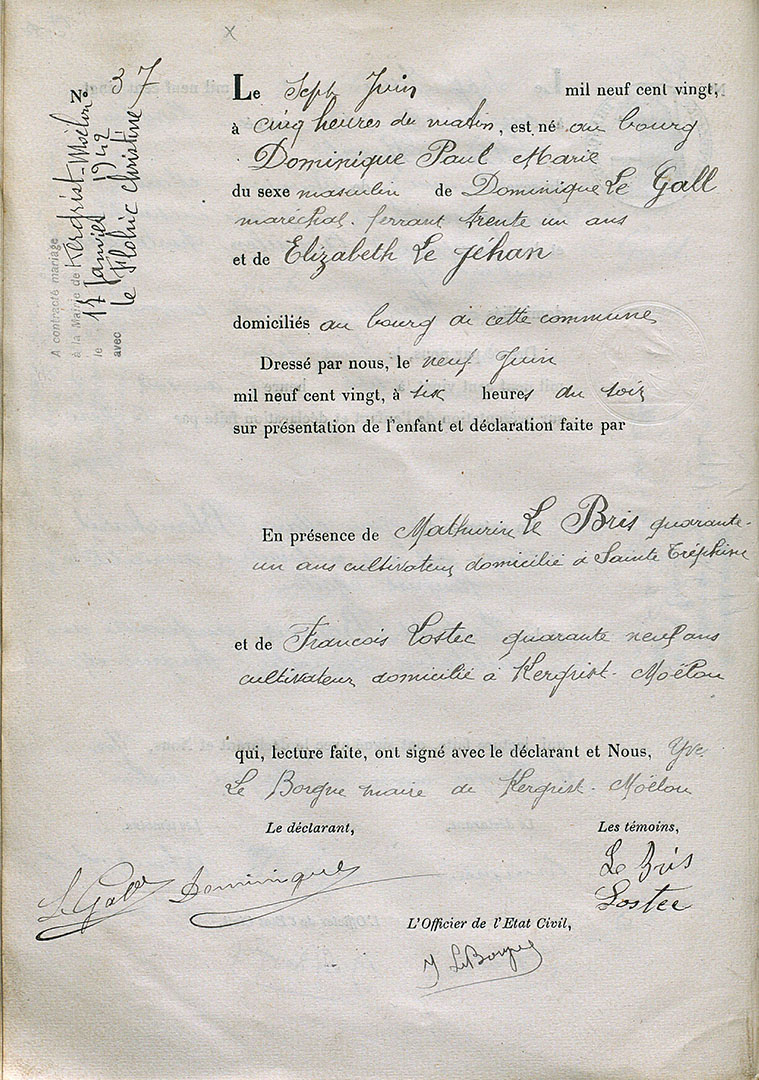 N° 37
A contracté mariage
à la Mairie de Kergrist-Moëlou
le 17 Janvier 1942
avec le Flohic Christine
Le Sept Juin mil neuf cent vingt,
à cinq heures du matin, est né au bourg
Dominique Paul Marie
du sexe masculin de Dominique Le Gall
maréchal-ferrant trente un ans
et de Elizabeth Le Jéhan
domiciliés au bourg de cette commune
Dressé par nous, le neuf Juin
mil neuf cent vingt, à six heures du soir
sur présentation de l'enfant et déclaration faite par
En présence de Mathurin Le Bris quarante-
un ans cultivateur domicilié à Sainte Tréphine
et de François Lostec quarante neuf ans
cultivateur domicilié à Kergrist-Moëlou
qui, lecture faite, ont signé avec le déclarant et Nous, Yve
Le Borgne maire de Kergrist-Moëlou
Le déclarant, Les témoins,
Le Gall Dominique Le Bris
Lostec
L'Officier de l'Etat Civil,
Y Le Borgne